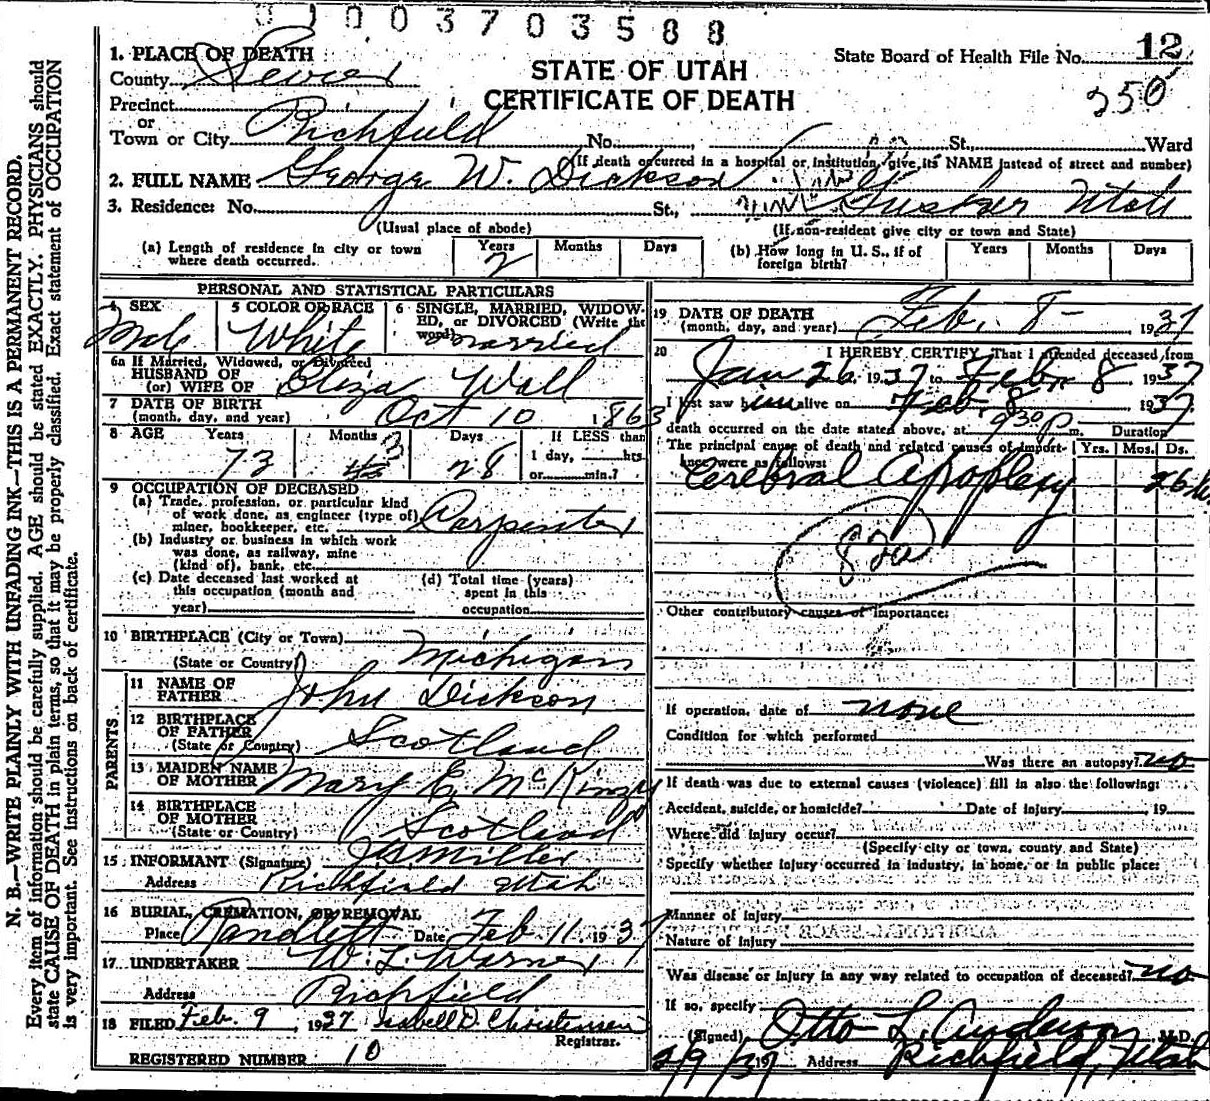 0 1 0 0 3 7 0 3 5 8 8
1. PLACE OF DEATH
County Sevier
Precinct
or
Town or City Richfield No. , St., Ward
STATE OF UTAH
CERTIFICATE OF DEATH
State Board of Health File No. 12
250
(If death occurred in a hospital or institution, give its NAME instead of street and number)
2. FULL NAME George W. Dickson
3. Residence: No. St., Utah
(Usual place of abode) (If non-resident give city or town and State)
(a) Length of residence in city or town where death occurred. Years 2 Months Days
(b) How long in U. S., if of foreign birth? Years Months Days
PERSONAL AND STATISTICAL PARTICULARS
4 SEX Male
5 COLOR OR RACE White
6 SINGLE, MARRIED, WIDOWED, or DIVORCED (Write the word) Married
6a If Married, Widowed, or Divorced
HUSBAND OF
(or) WIFE OF Eliza Wall
7 DATE OF BIRTH
(month, day, and year) Oct 10 1863
8 AGE Years 73 Months 3 Days 28 If LESS than
1 day, hrs.
or min.?
9 OCCUPATION OF DECEASED
(a) Trade, profession, or particular kind
of work done, as engineer (type of)
miner, bookkeeper, etc. Carpenter
(b) Industry or business in which work
was done, as railway, mine
(kind of), bank, etc.
(c) Date deceased last worked at
this occupation (month and
year)
(d) Total time (years)
spent in this
occupation
10 BIRTHPLACE (City or Town)
(State or Country) Michigan
PARENTS
11 NAME OF
FATHER John Dickson
12 BIRTHPLACE
OF FATHER
(State or Country) Scotland
13 MAIDEN NAME
OF MOTHER Mary E. McKinzy
14 BIRTHPLACE
OF MOTHER
(State or Country) Scotland
15 INFORMANT (Signature) Miller
Address Richfield Utah
16 BURIAL, CREMATION, OR REMOVAL
Place Randlett Date Feb 11. 1937
17 UNDERTAKER W. L. Warner
Address Richfield
18 FILED Feb. 9, 1937 Isabell D. Christensen
Registrar.
REGISTERED NUMBER 10
19 DATE OF DEATH
(month, day, and year) Feb. 8- 1937
20 I HEREBY CERTIFY, That I attended deceased from
Jan 26 1937 to Feb. 8 1937
I last saw him alive on Feb. 8 1937
death occurred on the date stated above, at 930 p m. Duration
The principal cause of death and related causes of importance were as follows: Yrs. Mos. Ds.
Cerebral Apoplexy 26
82a
Other contributory causes of importance:
If operation, date of none
Condition for which performed
Was there an autopsy? no
If death was due to external causes (violence) fill in also the following:
Accident, suicide, or homicide? Date of injury 19
Where did injury occur?
(Specify city or town, county, and State)
Specify whether injury occurred in industry, in home, or in public place:
Manner of injury
Nature of injury
Was disease or injury in any way related to occupation of deceased? no
If so, specify
(Signed) Otto L. Anderson M.D.
2/9/37 19 Address Richfield, Utah
N. B.—WRITE PLAINLY WITH UNFADING INK—THIS IS A PERMANENT RECORD.
Every item of information should be carefully supplied. AGE should be stated EXACTLY. PHYSICIANS should
state CAUSE OF DEATH in plain terms, so that it may be properly classified. Exact statement of OCCUPATION
is very important. See instructions on back of certificate.